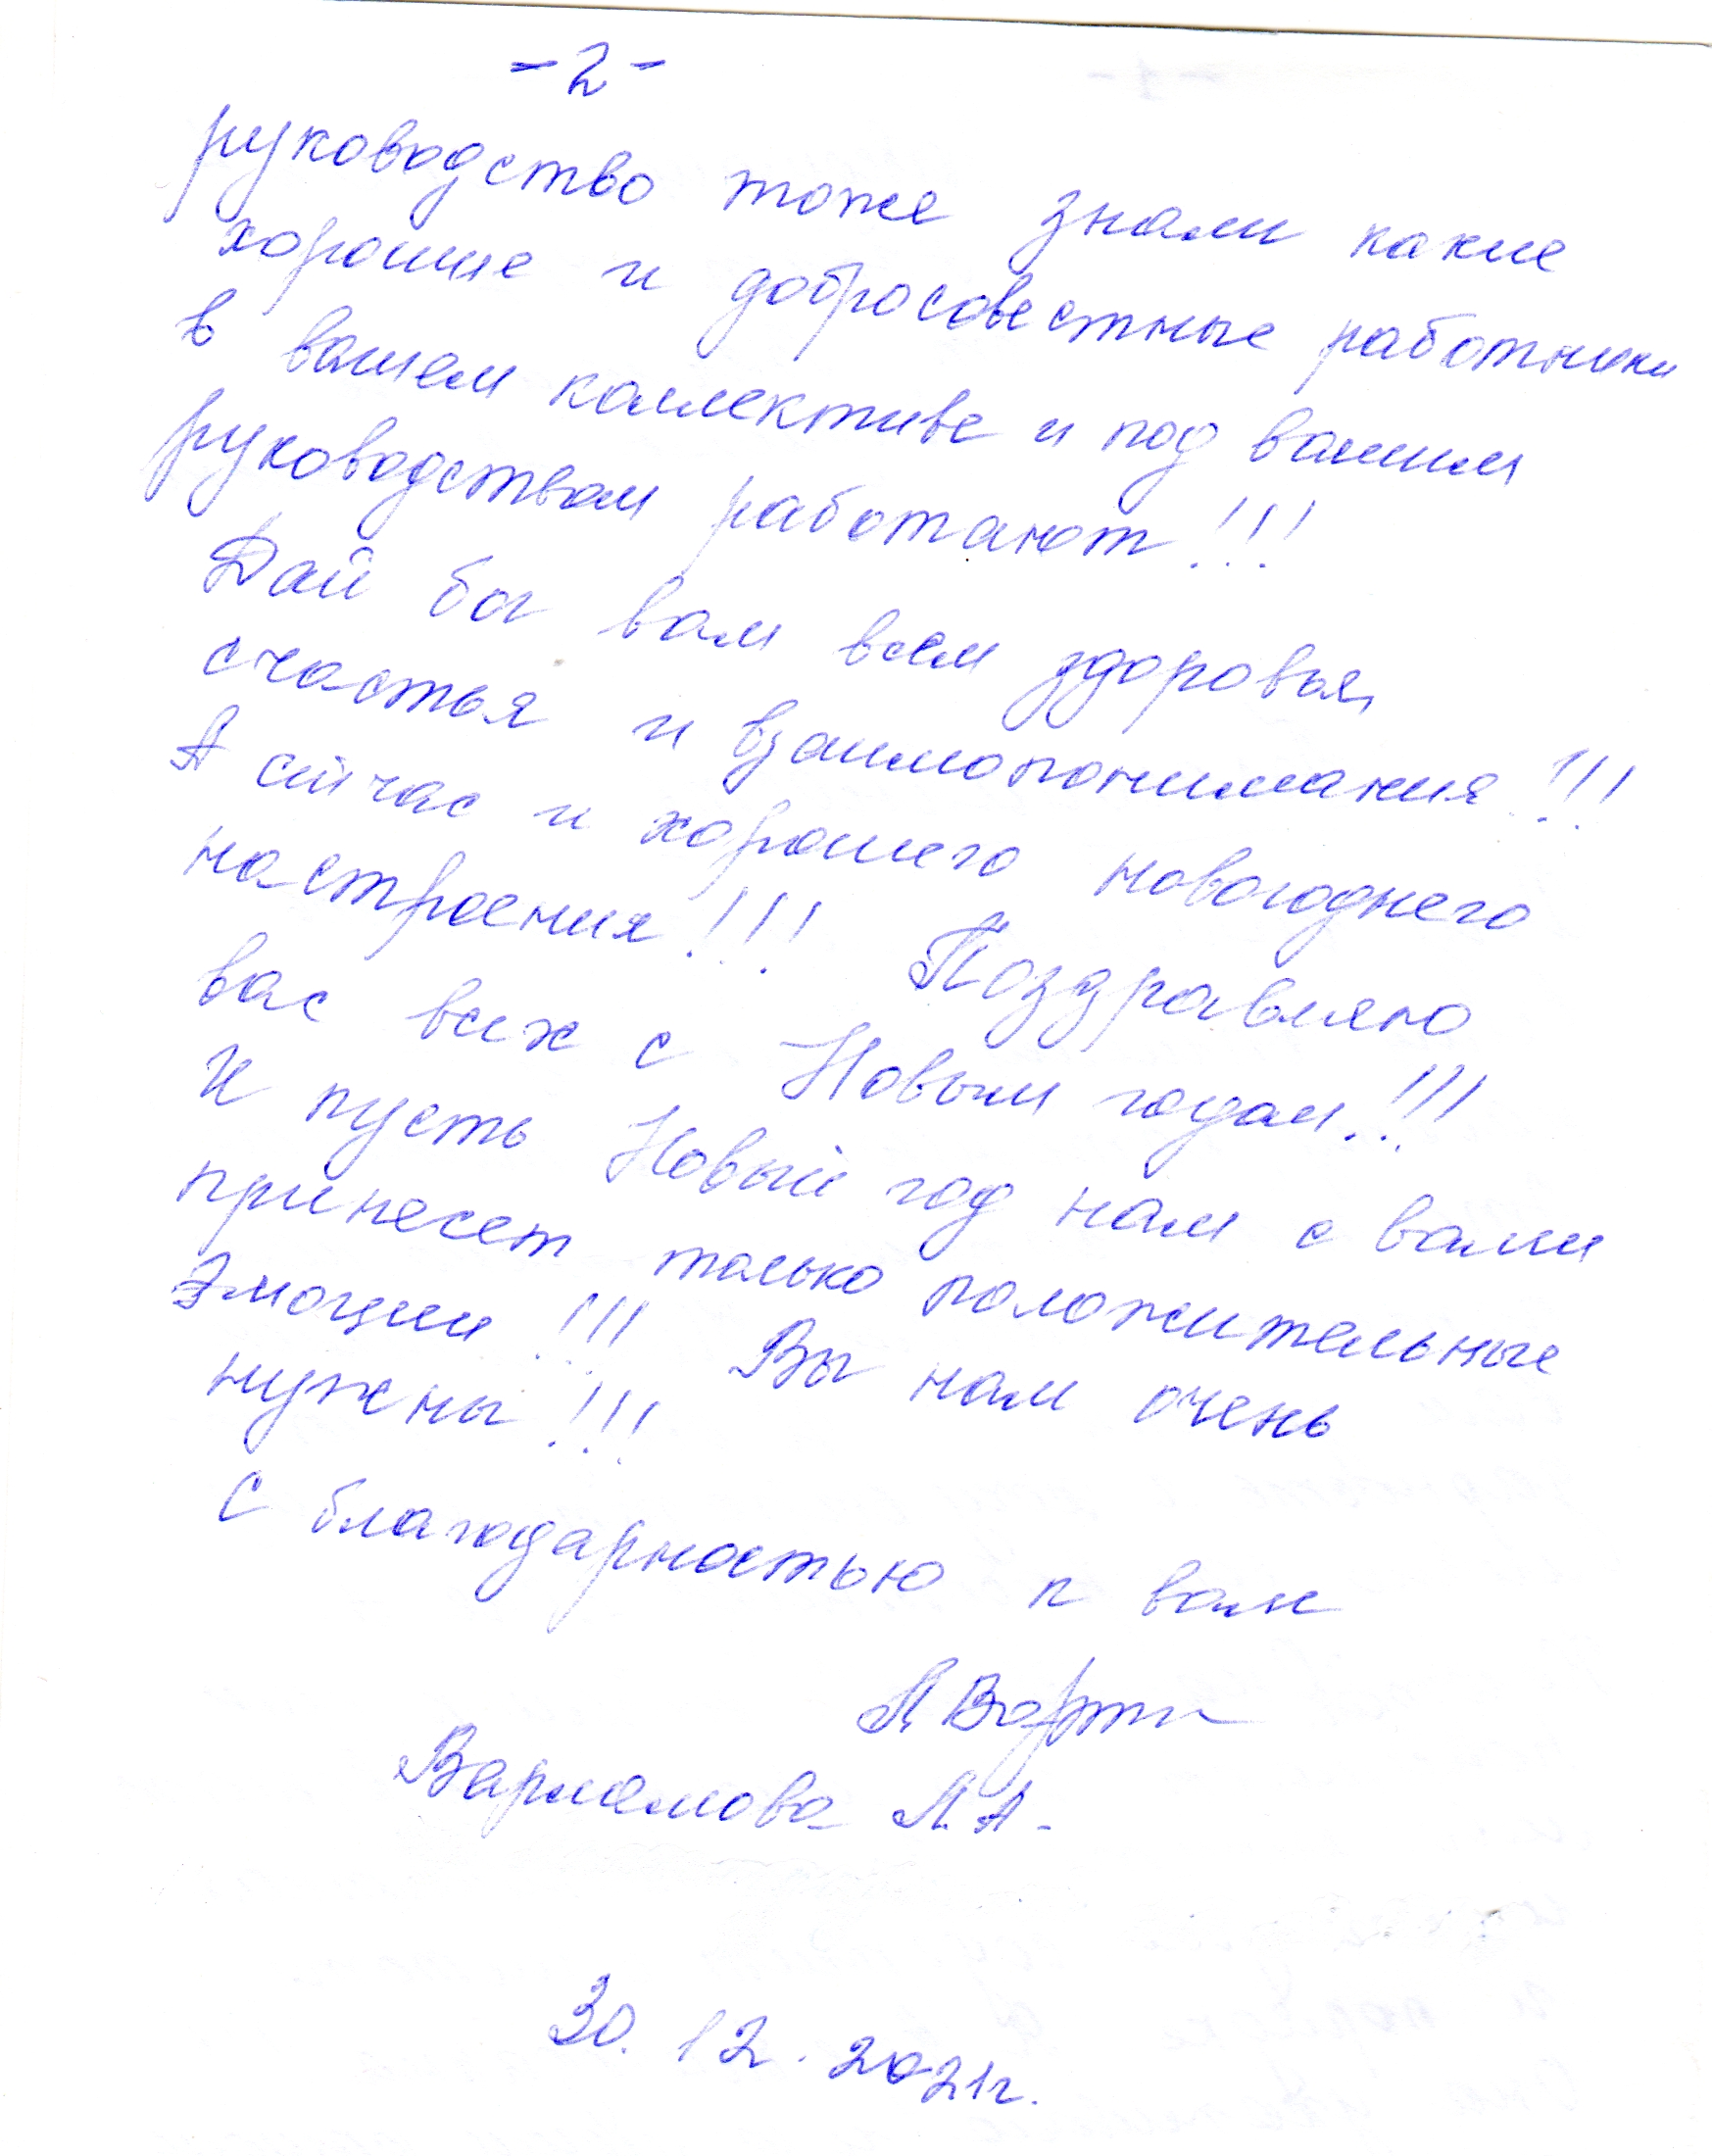 - 2 -
руководство тоже знали какие
хорошие и добросовестные работники
в вашем коллективе и под вашим
руководством работают!!!
Дай бог вам всем здоровья,
счастья и взаимопонимания!!!
А сейчас и хорошего новогоднего
настроения!!! Поздравляю
вас всех с Новым годом!!!
И пусть Новый год нам с вами
принесет только положительные
эмоции!!! Вы нам очень
нужны!!!
С благодарностью к вам
Варламова Л.А.
30.12.2021г.